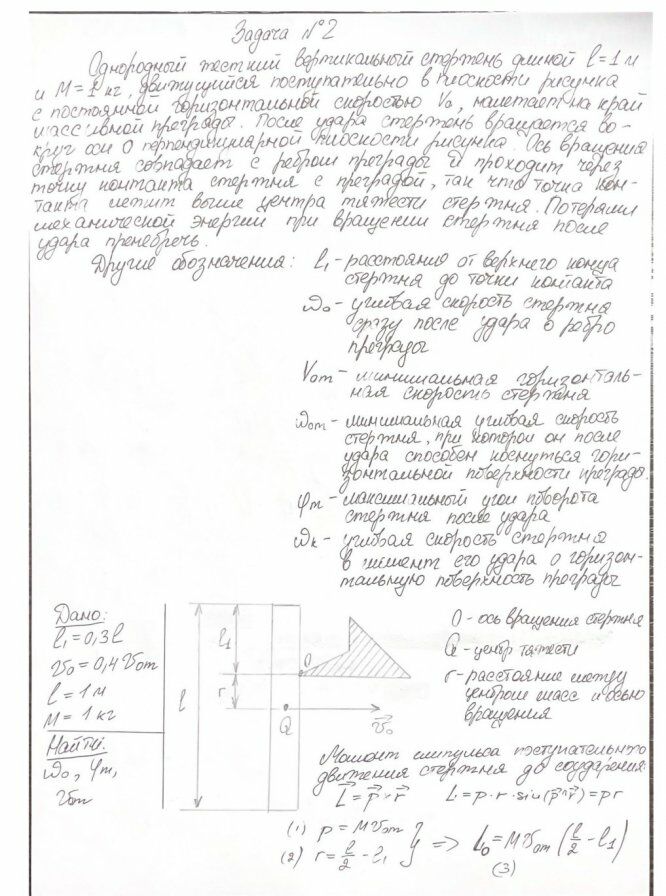 Задача №2
Однородный жесткий вертикальный стержень длиной l=1 м
и M=1 кг, движущийся поступательно в плоскости рисунка
с постоянной горизонтальной скоростью V₀, налетает на край
массивной преграды. После удара стержень вращается во-
круг оси О перпендикулярной плоскости рисунка. Ось вращения
стержня совпадает с ребром преграды и проходит через
точку контакта стержня с преградой, так что точка кон-
такта лежит выше центра тяжести стержня. Потерями
механической энергии при вращении стержня после
удара пренебречь.
Другие обозначения: l₁ - расстояние от верхнего конца
стержня до точки контакта
ω₀ - угловая скорость стержня
сразу после удара о ребро
преграды
V₀m - минимальная горизонталь-
ная скорость стержня
ω₀m - минимальная угловая скорость
стержня, при которой он после
удара способен коснуться гори-
зонтальной поверхности преграды.
φm - максимальный угол поворота
стержня после удара
ωк - угловая скорость стержня
в момент его удара о горизон-
тальную поверхность преграды
Дано:
l₁ = 0,3l
v₀ = 0,4 v₀m
l = 1 м
M = 1 кг
Найти:
ω₀, φm,
v₀m
l
l₁
r
O
Q
v⃗₀
O - ось вращения стержня
Q - центр тяжести
r - расстояние между
центром масс и осью
вращения
Момент импульса поступательного
движения стержня до соударения:
L⃗ = p⃗ × r⃗ L = p · r · sin(p⃗^r⃗) = pr
(1) p = Mv₀m
(2) r = l/2 - l₁ } => L₀ = Mv₀m (l/2 - l₁)
(3)